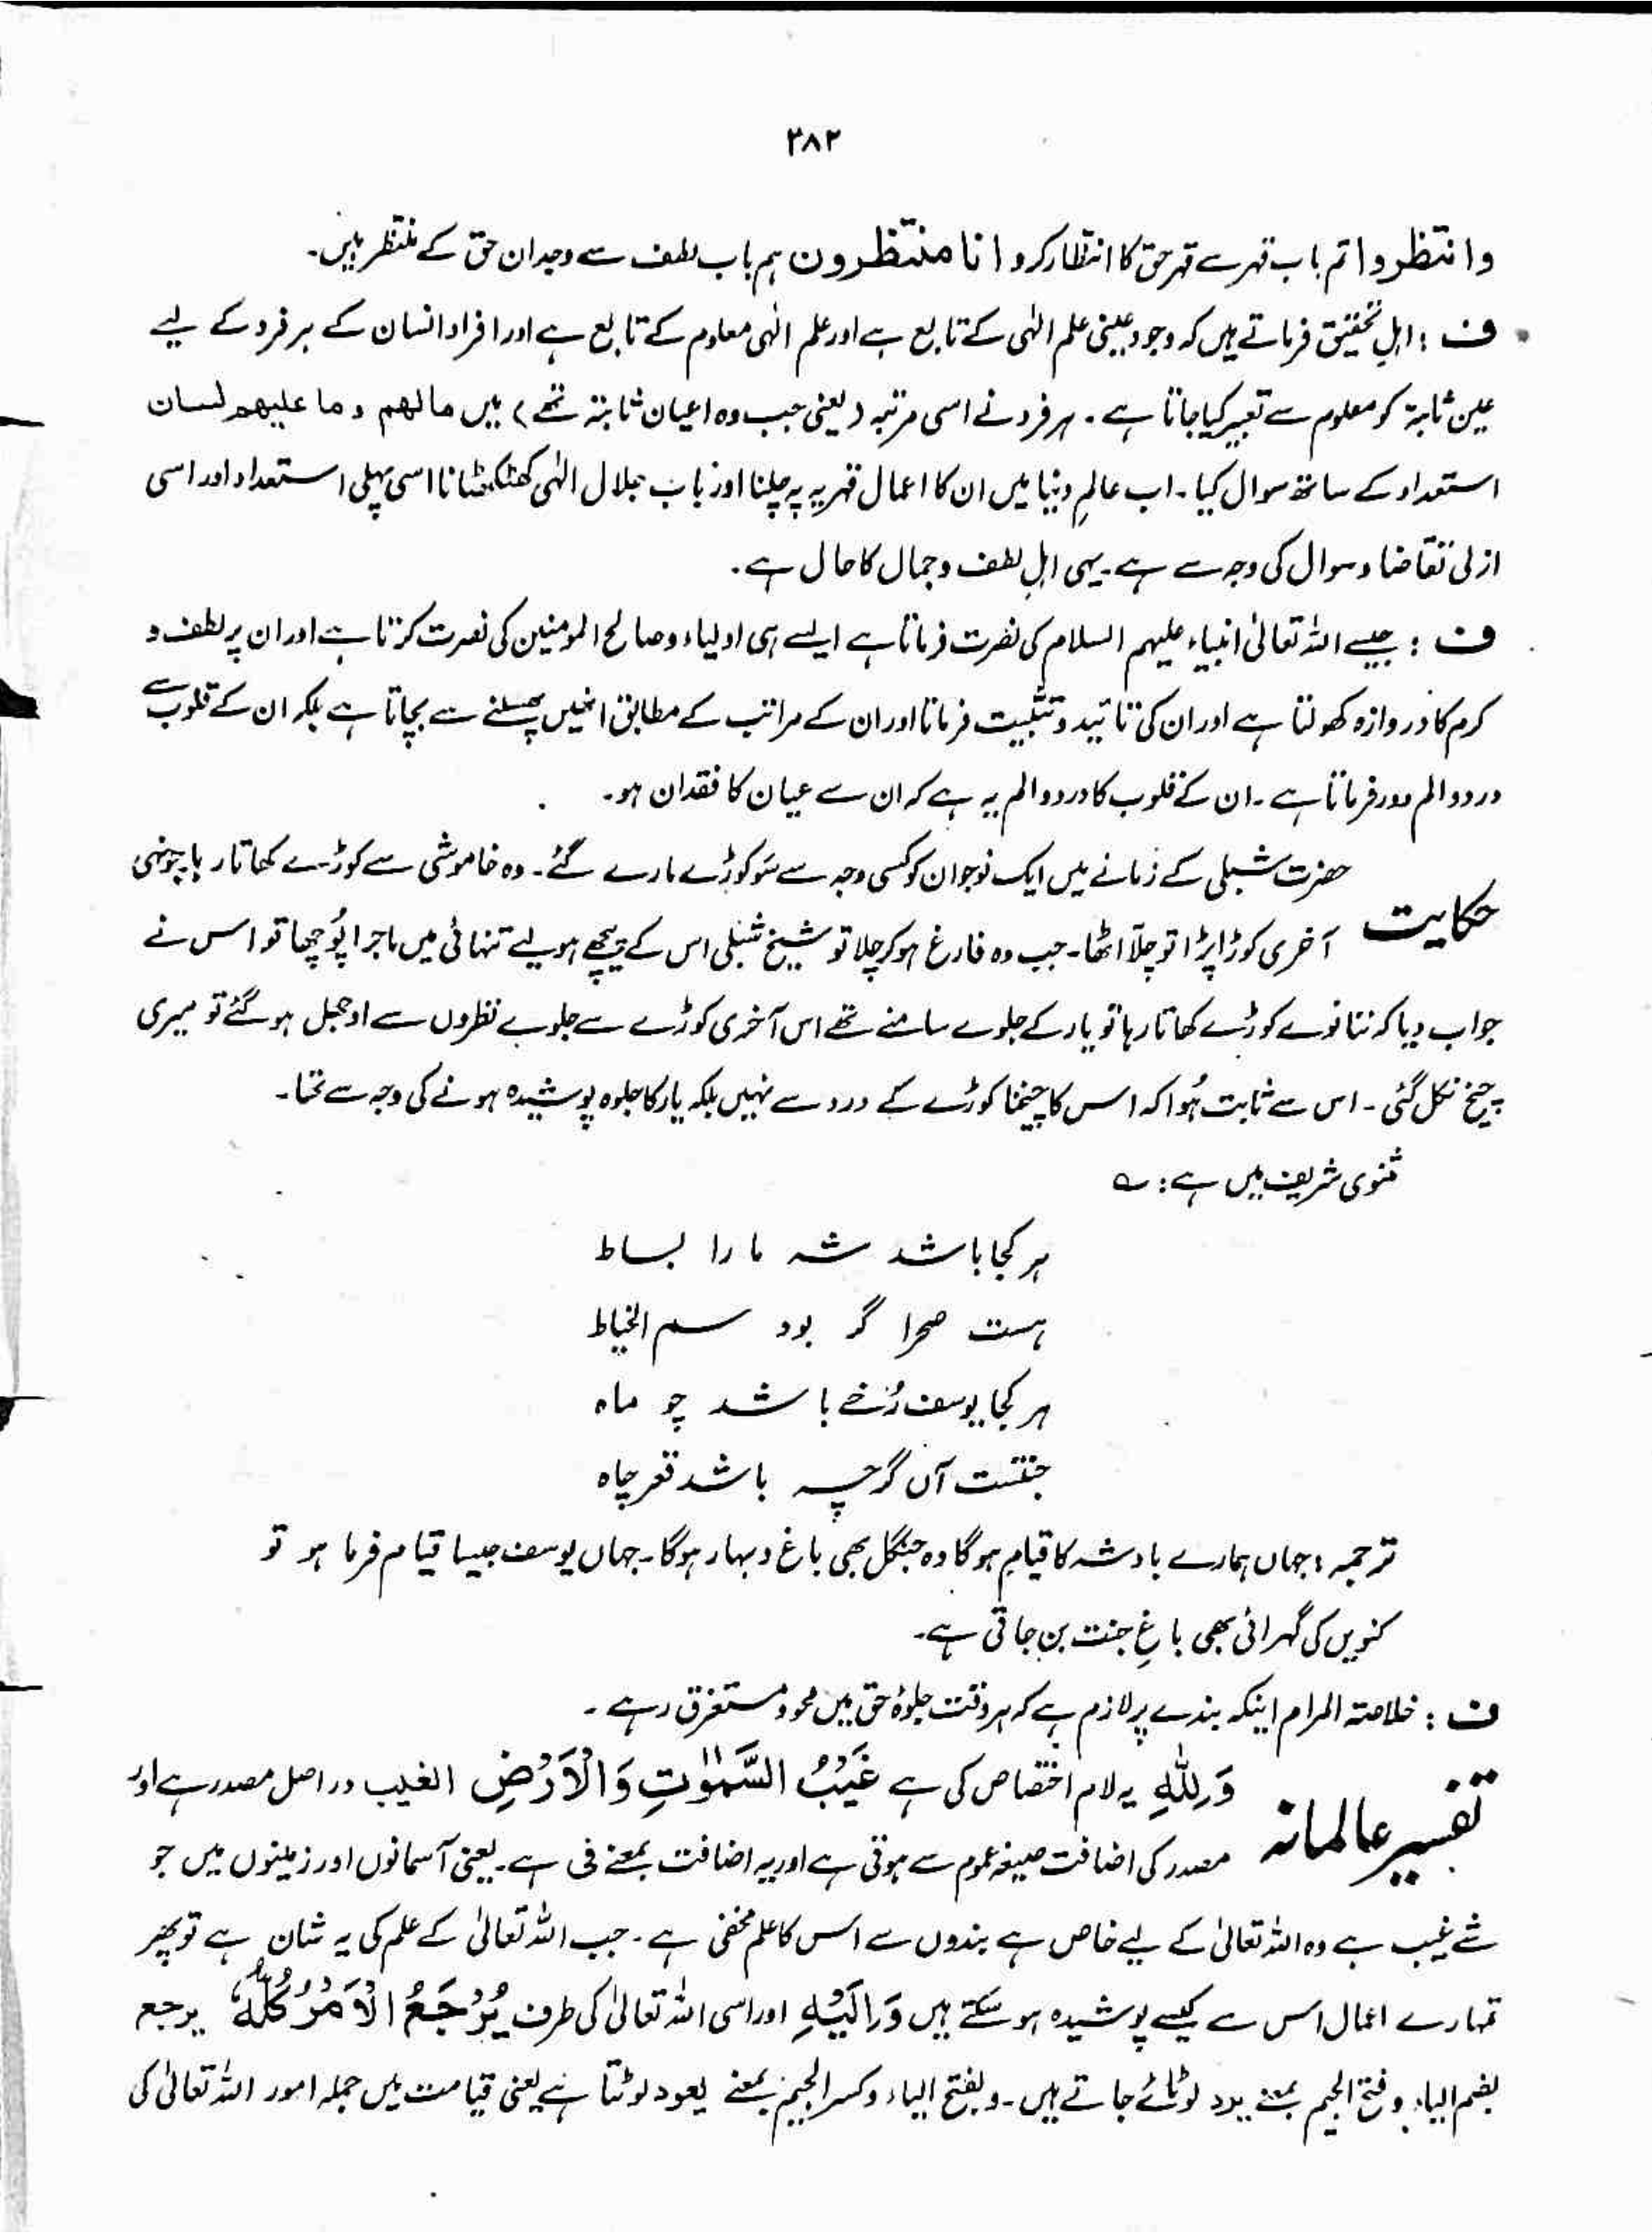 ۳۸۲
وانتظروا تم باب قہر سے قہر حق کا انتظار کرو انا منتظرون ہم باب لطف سے وجدان حق کے منتظر ہیں۔
ف : اہلِ تحقیق فرماتے ہیں کہ وجود عینی علم الٰہی کے تابع ہے اور علم الٰہی معلوم کے تابع ہے اور افراد انسان کے ہر فرد کے لیے
عین ثابتہ کو معلوم سے تعبیر کیا جاتا ہے ۔ ہر فرد نے اسی مرتبہ (یعنی جب وہ اعیان ثابتہ تھے) میں مالھم و ما علیھم لسان
استعداد کے ساتھ سوال کیا ۔ اب عالمِ دنیا میں ان کا اعمال قہریہ پہ چلنا اور باب جلال الٰہی کھٹکھٹانا اسی پہلی استعداد اور اسی
ازلی تقاضا و سوال کی وجہ سے ہے۔ یہی اہلِ لطف و جمال کا حال ہے۔
ف : جیسے اللہ تعالیٰ انبیاء علیہم السلام کی نصرت فرماتا ہے ایسے ہی اولیاء و صالح المومنین کی نصرت کرتا ہے اور ان پر لطف و
کرم کا دروازہ کھولتا ہے اور ان کی تائید و تثبیت فرماتا اور ان کے مراتب کے مطابق انھیں پھسلنے سے بچاتا ہے بلکہ ان کے قلوب سے
درد و الم دور فرماتا ہے ۔ ان کے قلوب کا درد و الم یہ ہے کہ ان سے عیان کا فقدان ہو۔
حکایت حضرت شبلی کے زمانے میں ایک نوجوان کو کسی وجہ سے سَو کوڑے مارے گئے ۔ وہ خاموشی سے کوڑے کھاتا رہا جونہی
آخری کوڑا پڑا تو چلّا اٹھا ۔ جب وہ فارغ ہو کر چلا تو شیخ شبلی اس کے پیچھے ہو لیے تنہائی میں ماجرا پُوچھا تو اس نے
جواب دیا کہ ننانوے کوڑے کھاتا رہا تو یار کے جلوے سامنے تھے اس آخری کوڑے سے جلوے نظروں سے اوجھل ہو گئے تو میری
چیخ نکل گئی ۔ اس سے ثابت ہُوا کہ اس کا چیخنا کوڑے کے درد سے نہیں بلکہ یار کا جلوہ پوشیدہ ہونے کی وجہ سے تھا ۔
مثنوی شریف میں ہے : ؎
ہر کجا باشد شہ ما را بساط
ہست صحرا گر بود سم الخیاط
ہر کجا یوسف رُخے باشد چو ماہ
جنتست آں گرچہ باشد قعر چاہ
ترجمہ : جہاں ہمارے بادشہ کا قیام ہوگا وہ جنگل بھی باغ و بہار ہوگا ۔ جہاں یوسف جیسا قیام فرما ہو تو
کنویں کی گہرائی بھی باغِ جنت بن جاتی ہے۔
ف : خلاصۃ المرام اینکہ بندے پر لازم ہے کہ ہر وقت جلوۂ حق میں محو و مستغرق رہے ۔
تفسیر عالمانہ وَلِلّٰہِ یہ لام اختصاص کی ہے غَیْبُ السَّمٰوٰتِ وَالْاَرْضِ الغیب در اصل مصدر ہے اور
مصدر کی اضافت صیغہ عموم سے ہوتی ہے اور یہ اضافت بمعنے فی ہے ۔ یعنی آسمانوں اور زمینوں میں جو
شے غیب ہے وہ اللہ تعالیٰ کے لیے خاص ہے بندوں سے اس کا علم مخفی ہے ۔ جب اللہ تعالیٰ کے علم کی یہ شان ہے تو پھر
تمہارے اعمال اس سے کیسے پوشیدہ ہو سکتے ہیں وَاِلَیْہِ اور اسی اللہ تعالیٰ کی طرف یُرْجَعُ الْاَمْرُ کُلُّہٗ یرجع
بضم الیاء و فتح الجیم بمعنے یرد لوٹائے جاتے ہیں ۔ و بفتح الیاء و کسر الجیم بمعنے یعود لوٹتا ہے یعنی قیامت میں جملہ امور اللہ تعالیٰ کی